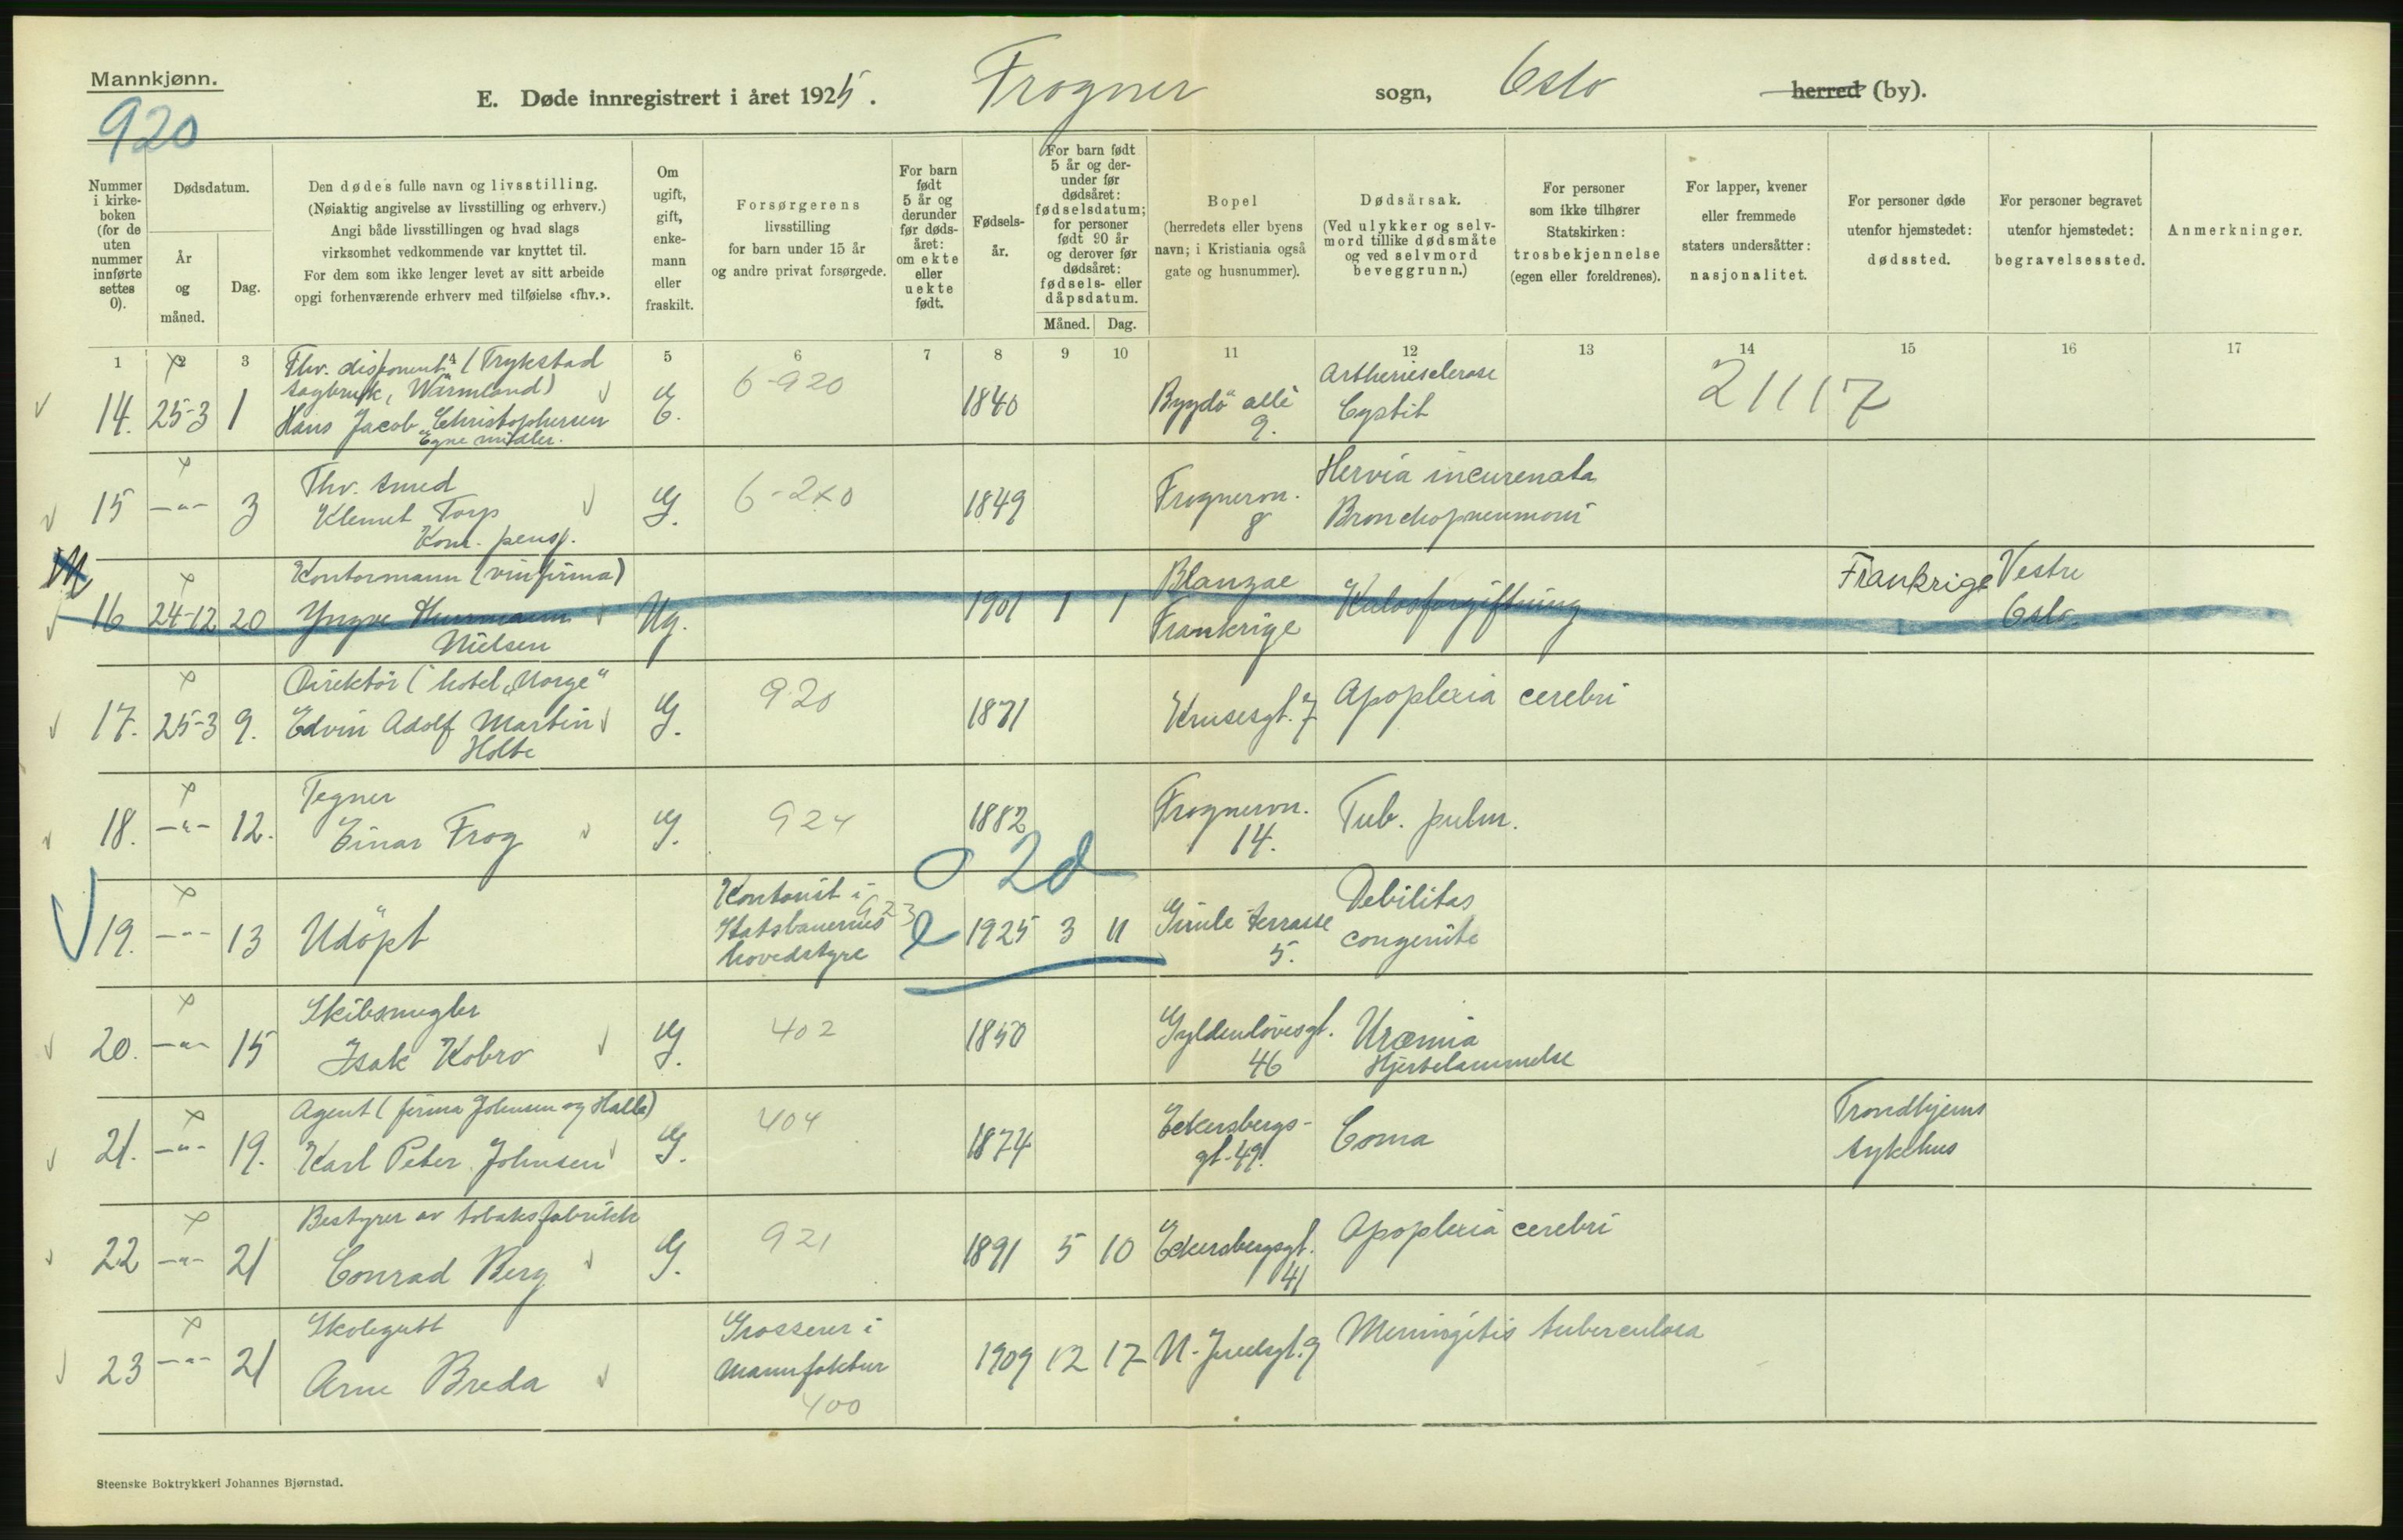 Mannkjønn.
920
E. Døde innregistrert i året 1925. Frogner sogn, Oslo herred (by).
Nummer i kirkeboken (for de uten nummer innførte settes 0).
Dødsdatum.
År og måned.
Dag.
Den dødes fulle navn og livsstilling.
(Nøiaktig angivelse av livsstilling og erhverv.)
Angi både livsstillingen og hvad slags
virksomhet vedkommende var knyttet til.
For dem som ikke lenger levet av sitt arbeide
opgi forhenværende erhverv med tilføielse «fhv.».
Om ugift, gift, enkemann eller fraskilt.
Forsørgerens
livsstilling
for barn under 15 år
og andre privat forsørgede.
For barn født 5 år og derunder før dødsåret: om ekte eller uekte født.
Fødselsår.
For barn født 5 år og derunder før dødsåret: fødselsdatum; for personer født 90 år og derover før dødsåret: fødsels- eller dåpsdatum.
Måned. Dag.
Bopel
(herredets eller byens
navn; i Kristiania også
gate og husnummer).
Dødsårsak.
(Ved ulykker og selvmord tillike dødsmåte og ved selvmord beveggrunn.)
For personer
som ikke tilhører
Statskirken:
trosbekjennelse
(egen eller foreldrenes).
For lapper, kvener
eller fremmede
staters undersåtter:
nasjonalitet.
For personer døde
utenfor hjemstedet:
dødssted.
For personer begravet
utenfor hjemstedet:
begravelsessted.
Anmerkninger.
1 2 3 5 6 7 8 9 10 11 12 13 14 15 16 17
Fhv. disponent (Trykstad
sagbruk, Wärmland)
14. 25-3 1 Hans Jacob Christophersen E. 6-920 1840 Bygdö alle 9. Artheriesclerose Cystit 21117
Egne midler.
Fhv. smed
15 -"- 3 Klemet Torp G. 6-2x0 1849 Frognervn. 8 Hernia incurenata Bronchopneumoni
Kom. pensj.
Kontormann (vinfirma)
16 24-12 20 Yngve Hermann Nielsen Ug. 1901 1 1 Blanzac Frankrige Kulosforgiftning Frankrige Vestre Oslo
Direktör (hotel „Norge"
17. 25-3 9. Edvin Adolf Martin Holte G. 920 1871 Krusesgt. 7 Apoplexia cerebri
Tegner
18. -"- 12. Einar Frog G. 924 1882 Frognervn. 14. Tub. pulm.
0 2d
19. -"- 13 Udöpt Kontorist i Statsbanernes hovedstyre 923 e 1925 3 11 Gimle terrasse 5. Debilitas congenita
Skibsmegler
20. -"- 15 Isak Kobro G. 402 1850 Gyldenlövesgt. 46 Uræmia Hjertelammelse
Agent (firma Johnsen og Halle)
21. -"- 19. Karl Peter Johnsen G. 404 1874 Eckersbergs-gt. 49. Coma Trondhjems sykehus
Bestyrer av tobaksfabrikk
22 -"- 21 Conrad Berg G. 921 1891 5 10 Eckersbergsgt. 41 Apoplexia cerebri
Skolegutt
23 -"- 21 Arne Breda Grosserer i Manufaktur 400 1909 12 17 N. Juelsgt. 9 Meningitis tuberculosa
Steenske Boktrykkeri Johannes Bjørnstad.